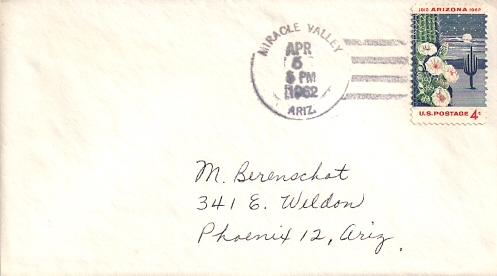 1912 ARIZONA 1962
U.S. POSTAGE 4¢
MIRACLE VALLEY
APR
5
PM
1962
ARIZ.
M. Berenschot
341 E. Weldon
Phoenix 12, Ariz.